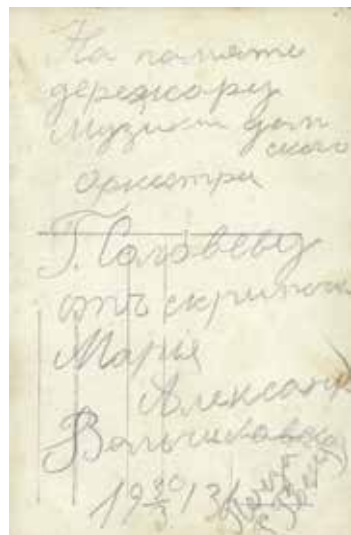 На память
дережору
Музыки дам
ского
оркестра
Г. Соловьеву
отъ скрипачк
Марія
Александ
19 30/3 13